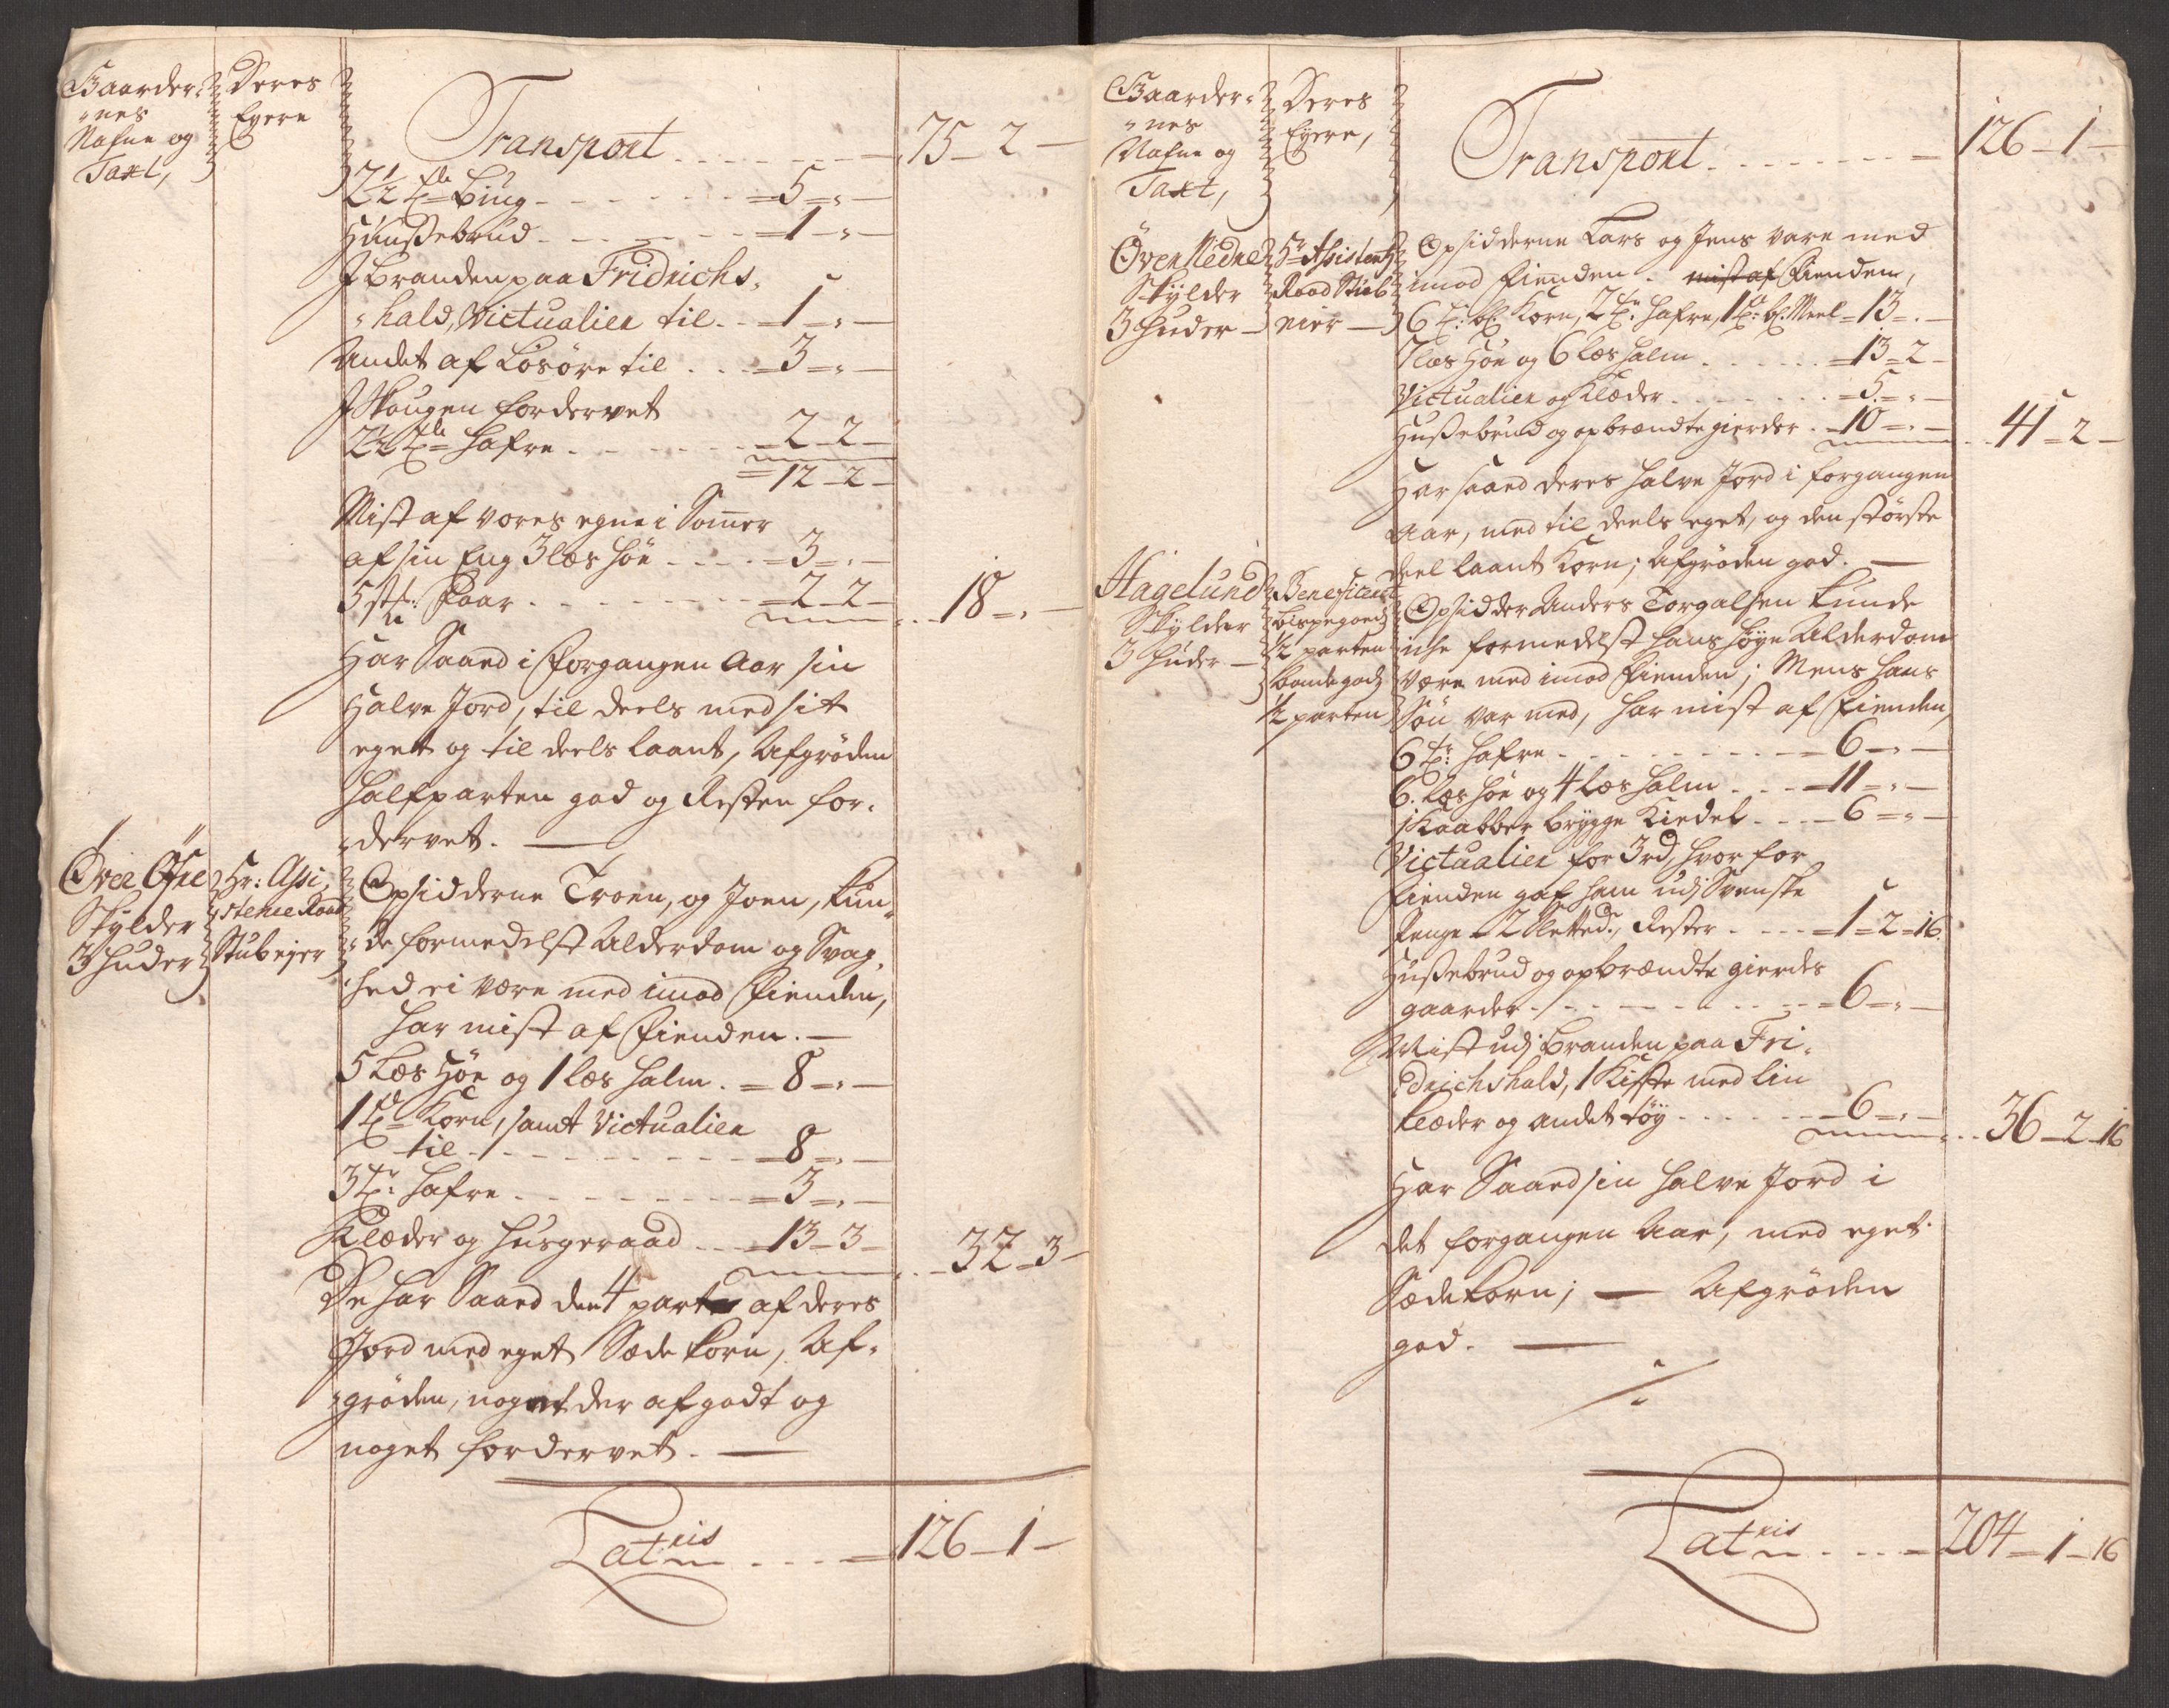 Gaarder-
-nes
Nafne og
Taxt,
Deres
Eyere
Transport . . . . . 75 - 2 -
2½ Tde Biug - - - - 5 - " -
Hussebrud - - - - 1 - " -
J Branden paa Fridrichs-
-hald, Victualier til - - 1 - " -
Andet af Lösöre til . . . 3 - " -
J Skougen fordervet
2½ Tde Hafre . . . . 2 - 2 -
12 - 2 -
Mist af vores egne i Somer
af sin Eng 3 læs höe . . . 3 - " -
5 st: Faar . . . . 2 - 2 - . . 18 - " -
Har Saaed i forgangen Aar sin
Halve Jord, til deels med sit
eget og til deels laant, Afgröden
halfparten god og Resten for-
-dervet. —
Över
Skylder
3 huder
Hr: Assi-
stence Raad
Stubejer
Opsidderne Troen, og Joen, kun-
-de formedelst Alderdom og Svag-
-hed ei være med imod Fienden,
har mist af Fienden. —
5 Læs Höe og 1 læs halm . - 8 - " -
1 Td Korn, samt Victualier
til - - - - 8 - " -
3 Tr: Hafre - - - - 3 - " -
Klæder og husgeraad . . . 13 - 3 - . . 32 - 3 -
De har Saaed den 4 part af deres
Jord med eget Sæde korn, Af-
-gröden, noget der af godt og
noget fordervet. —
Latris . . . . 126 - 1 -
Gaarder-
-nes
Nafne og
Taxt,
Deres
Eyere,
Transport . . . . . 126 - 1 -
Öven Nedre
Skylder
3 huder -
Hr Assistentz
Raad Stub-
eier -
Opsidderne Lars og Jens vare med
imod Fienden. mist af Fienden,
6 T: bl: Korn, 2 Tr: Hafre, 1 T: bl: Meel - 13 - " -
7 læs Höe og 6 læs halm . . . . 13 - 2 -
Victualier og Klæder . . . . 5 - " -
Hussebrud og opbrændte gierder . 10 - " - . . 41 - 2 -
Har saaed deres halve Jord i forgangen
Aar, med til deels eget, og den störste
deel laant Korn; Afgröden god. —
Hagelund
Skylder
3 huder -
Beneficeret
½ parten
bondegodz
½ parten
Opsidder Anders Torgalsen kunde
iche formedelst hans höye Alderdom
være med imod Fienden; Mens hans
Sön var med, har mist af Fienden,
6 Tr: Hafre . . . . 6 - " -
6. Læs höe og 4 læs halm . . . 11 - " -
1 Kaabber brygge Kiedel . . . 6 - " -
Victualier for 3 rd, hvor for
Fienden gaf ham udj Svenske
Penge 2 Sletted., Rester . . . 1 - 2 - 16
Hussebrud og opbrændte gierdes
gaarder . . . . 6 - " -
Mist udj Branden paa Fri-
-drichshald, 1 Kiste med lin
klæder og andet töy . . . . 6 - " - . . 36 - 2 - 16
Har Saaed sin halve Jord i
det forgangen Aar, med eget
Sædekorn; — Afgröden
god. —
Latris . . . . 204 - 1 - 16